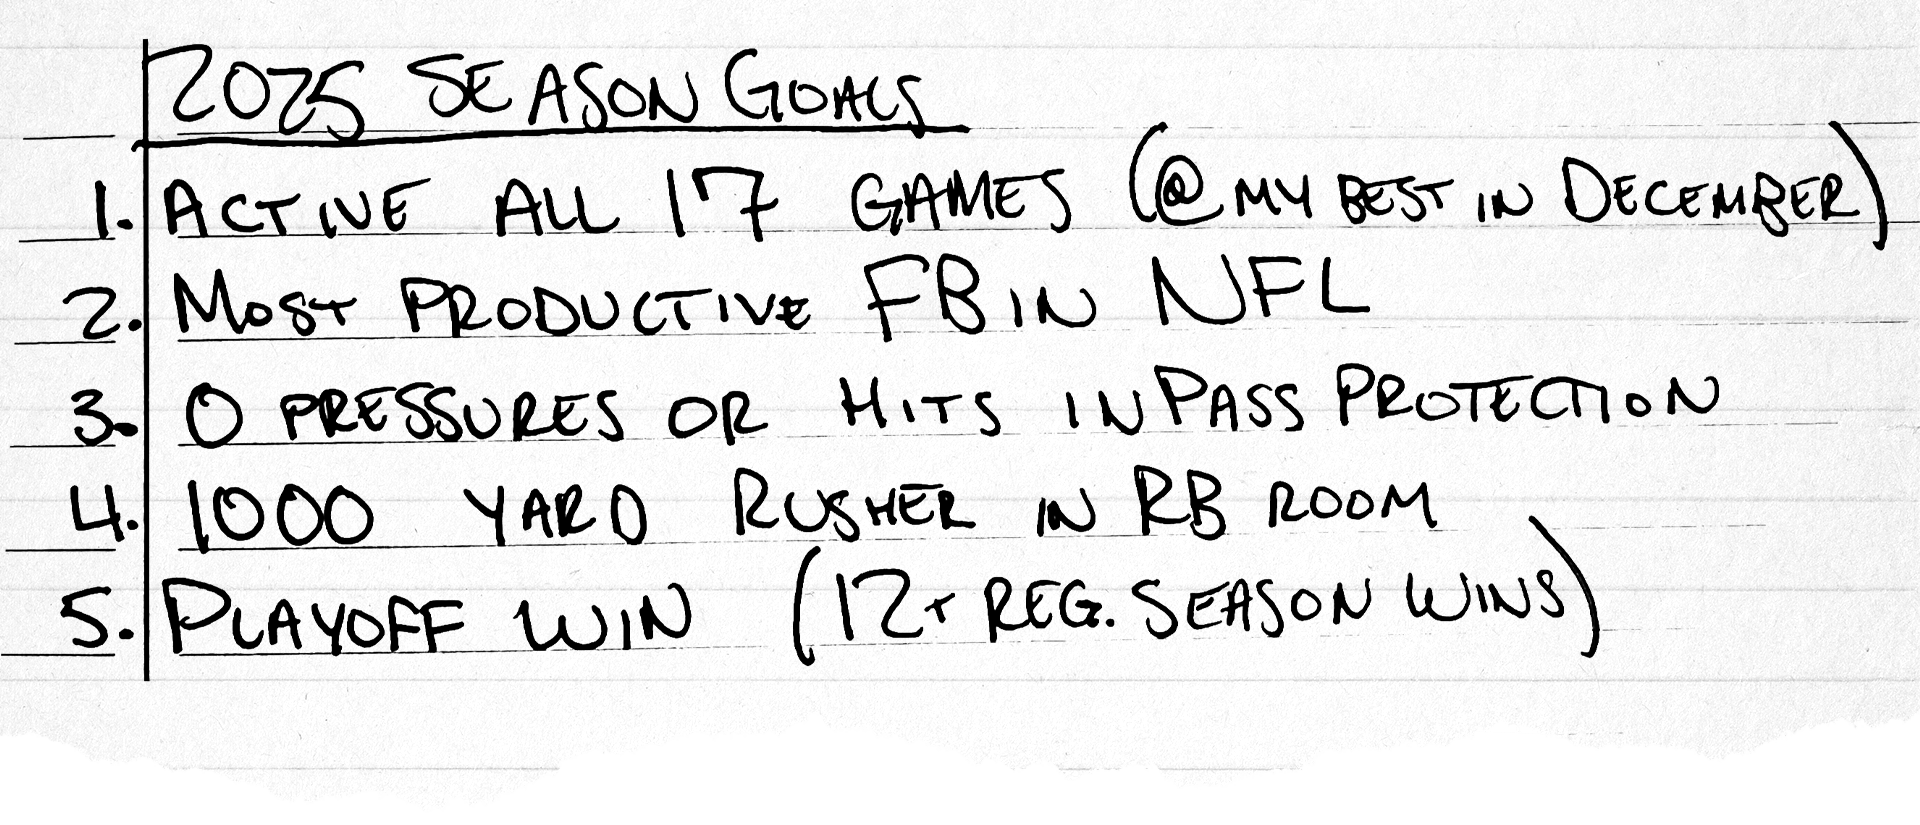 2025 SEASON GOALS
1. ACTIVE ALL 17 GAMES (@ MY BEST IN DECEMBER)
2. MOST PRODUCTIVE FB IN NFL
3. 0 PRESSURES OR HITS IN PASS PROTECTION
4. 1000 YARD RUSHER IN RB ROOM
5. PLAYOFF WIN (12+ REG. SEASON WINS)